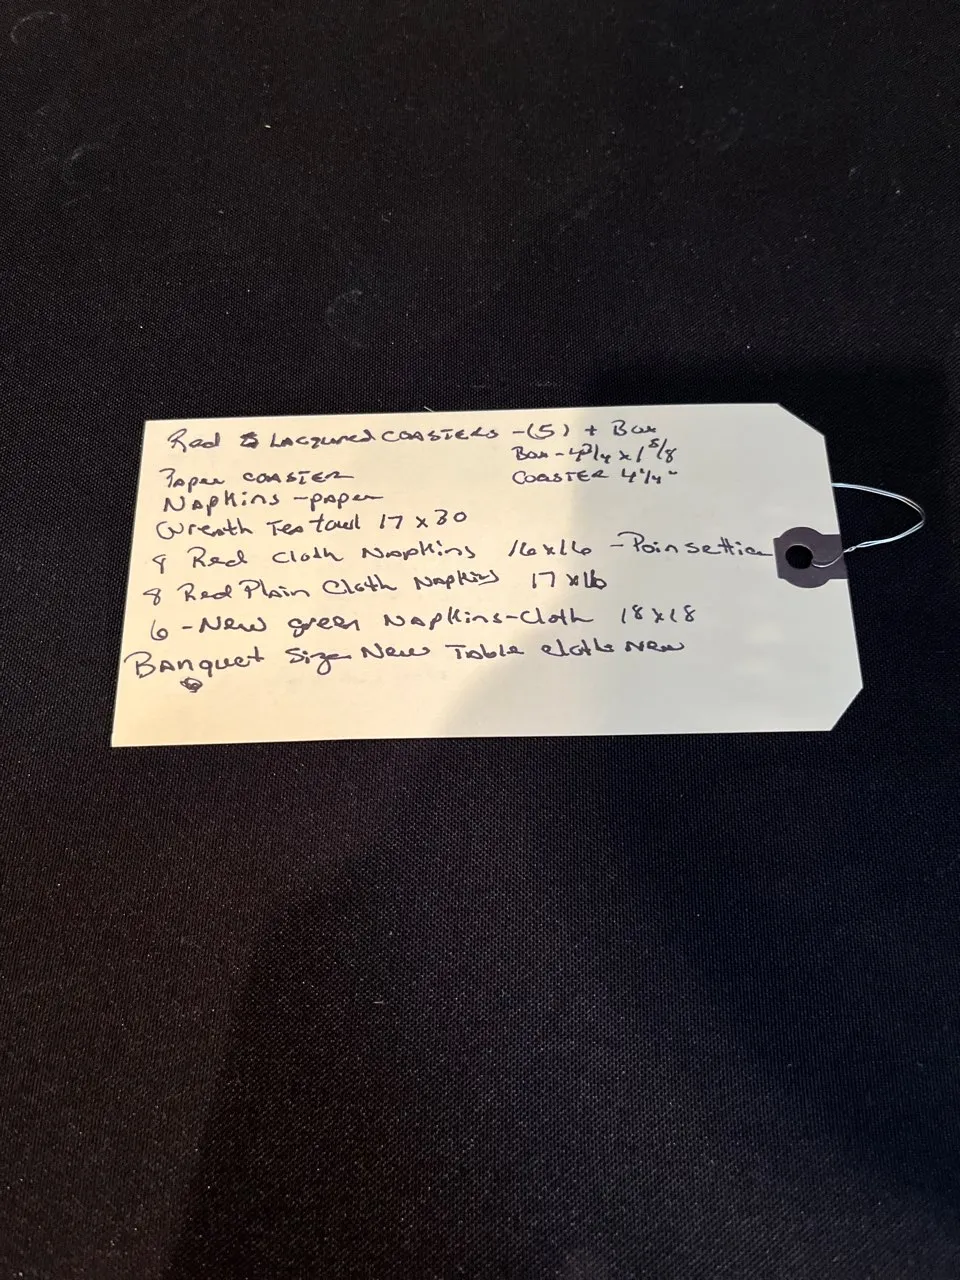 Red Lacqured COASTERS -(5) + Box
Box - 4 3/4 x 1 5/8
COASTER 4 1/4"
Paper COASTER
Napkins - paper
Wreath Tea towl 17 x 30
8 Red Cloth Napkins 16x16 - Poinsettia
8 Red Plain Cloth Napkins 17 x 16
6 - New green Napkins - Cloth 18 x 18
Banquet Size New Table cloth New